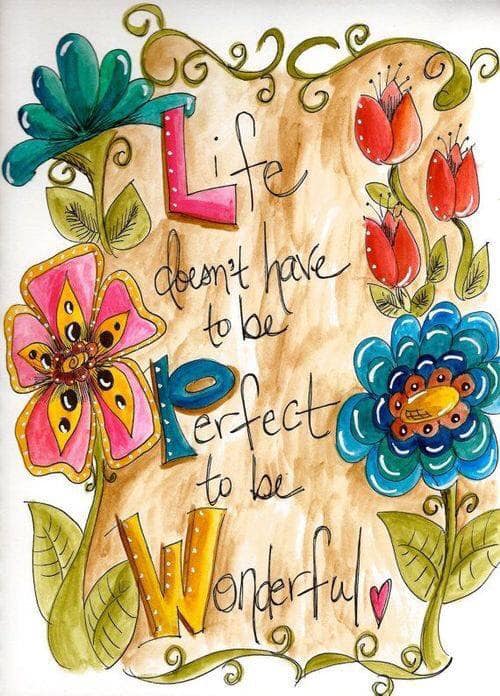 Life
doesn't have
to be
Perfect
to be
Wonderful